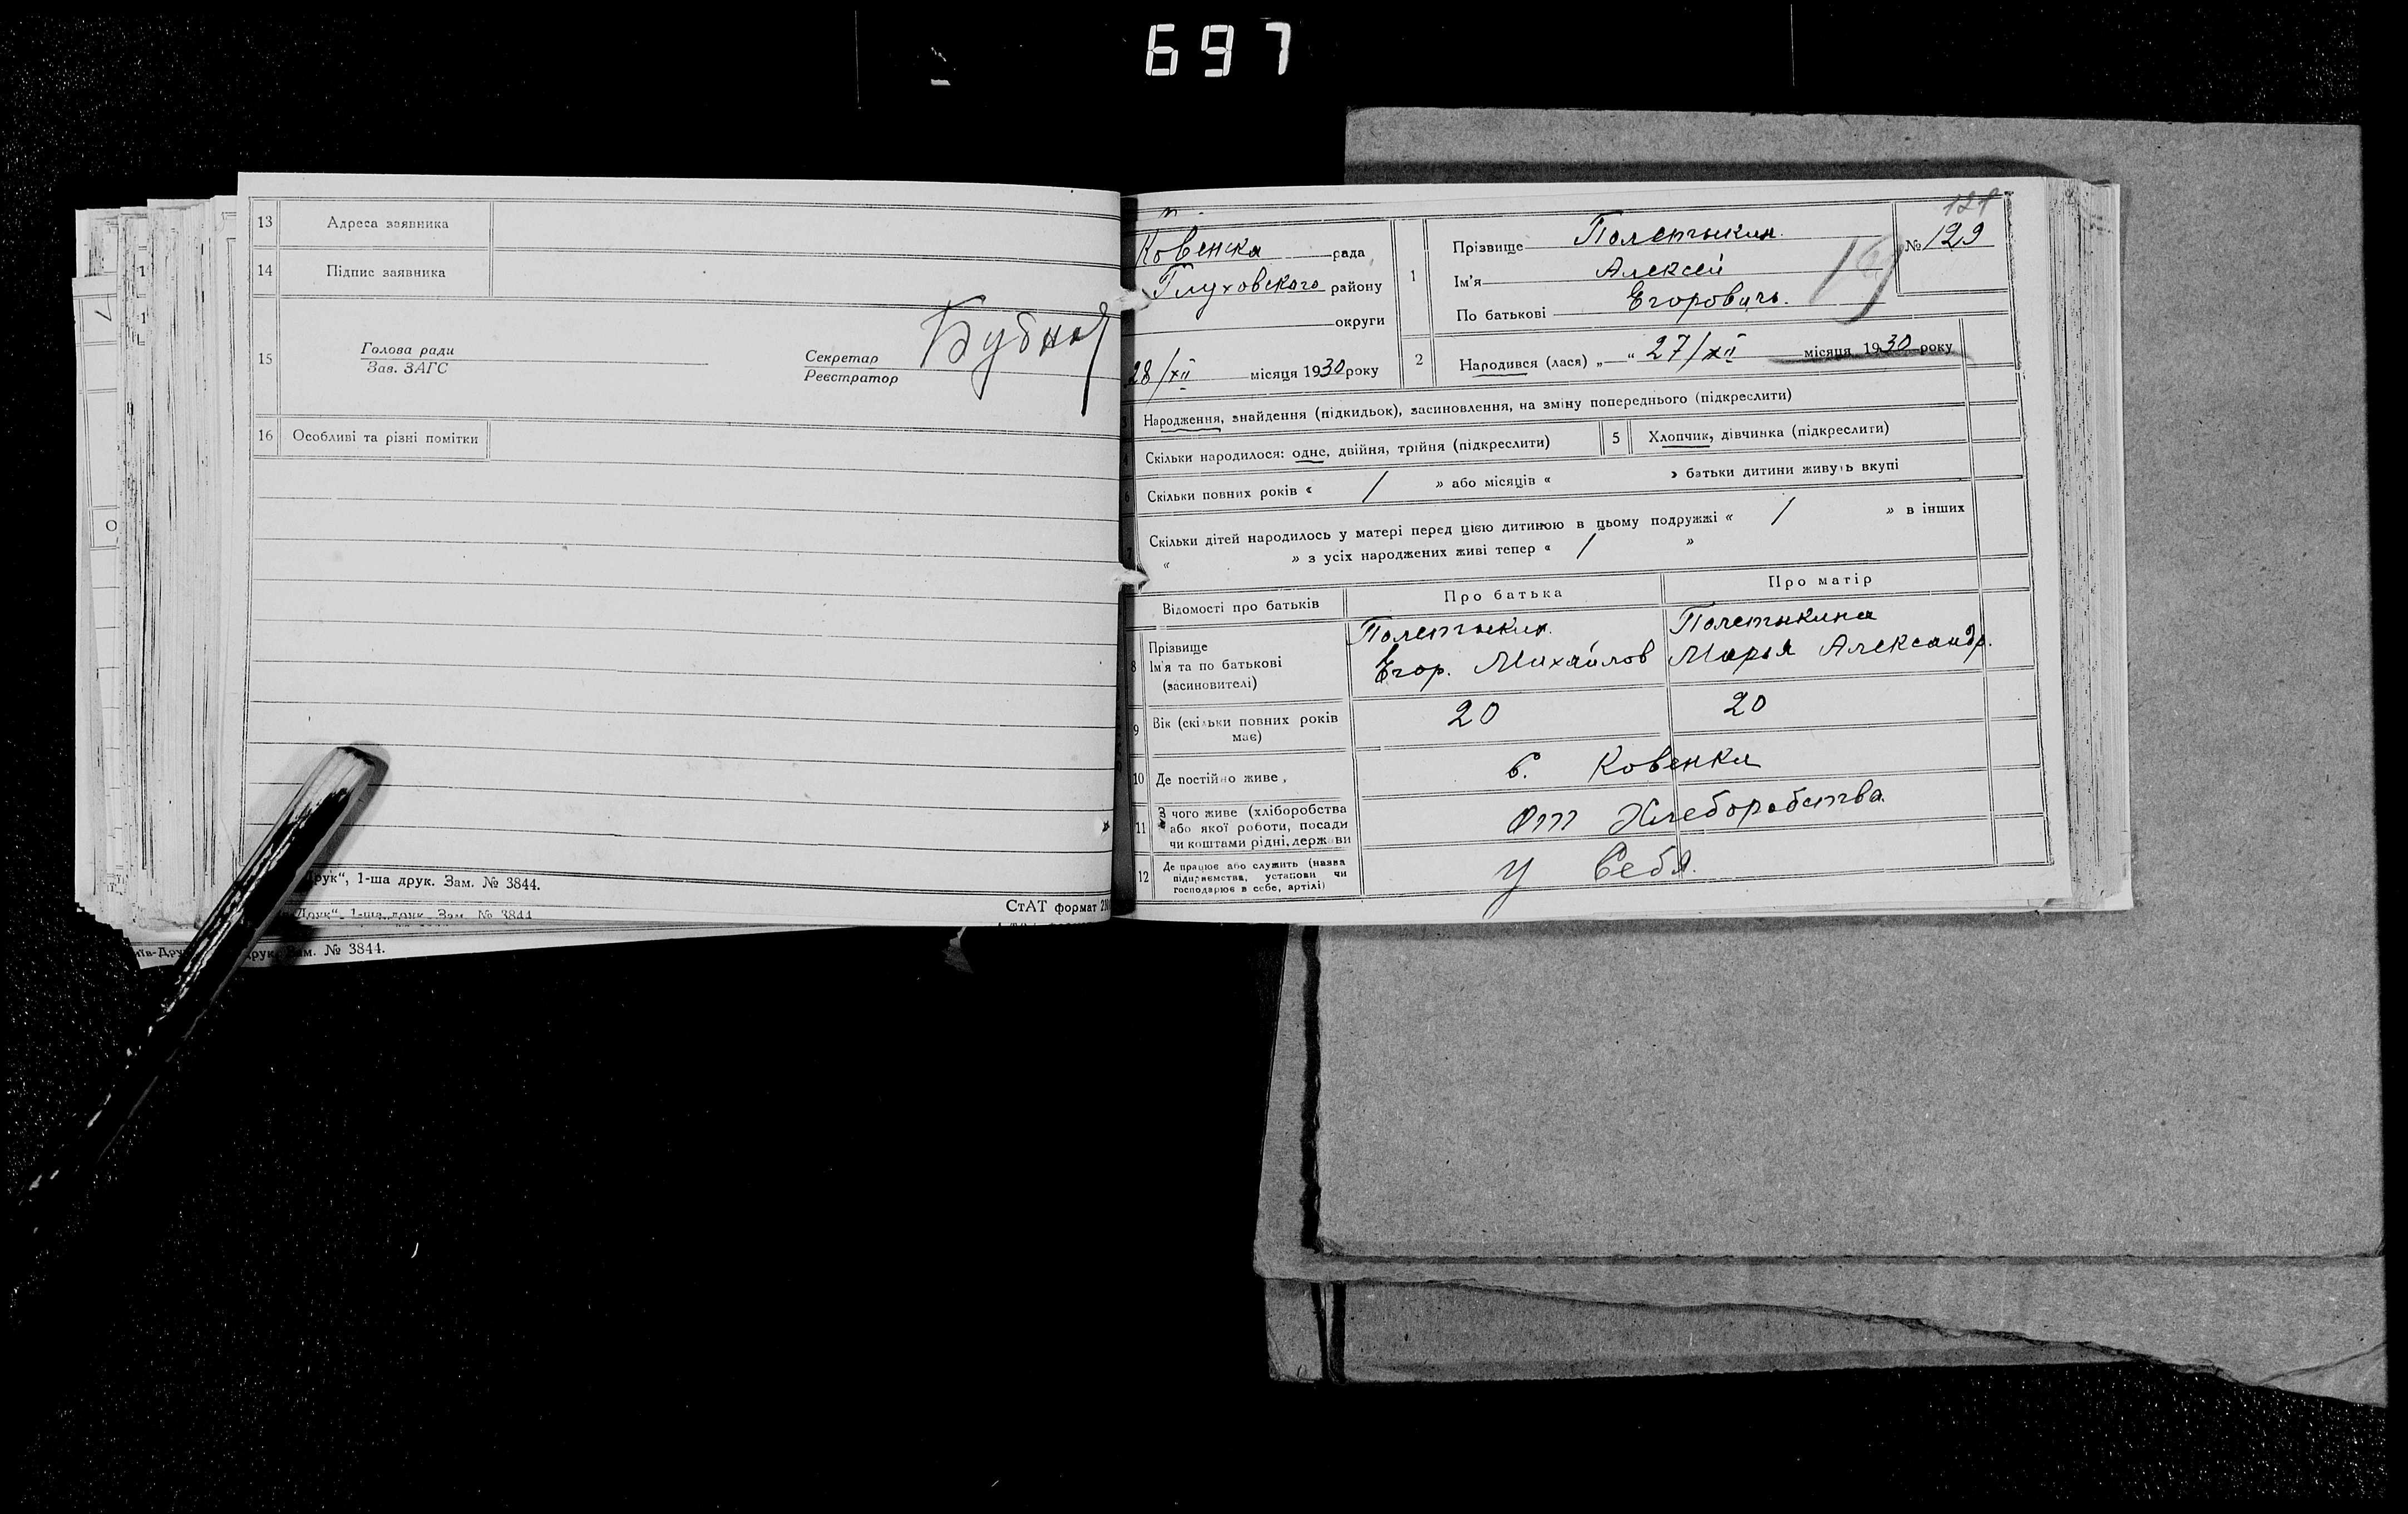 697
13 Адреса заявника
14 Підпис заявника
15 Голова ради
Зав. ЗАГС
Секретар
Реєстратор
Бубная
16 Особливі та різні помітки
Друк“, 1-ша друк. Зам. № 3844.
СтАТ формат
Друк“ 1-ша друк. Зам. № 3844
друк. Зам. № 3844.
121
Ковенка рада
Глуховского району
округи
28/XII місяця 1930 року
1 Прізвище Полетыкин.
Ім'я Алексей
По батькові Егоровичь.
№ 129
2 Народився (лася) „ “ 27/XII місяця 1930 року
3 Народження, знайдення (підкидьок), засиновлення, на зміну попереднього (підкреслити)
4 Скільки народилося: одне, двійня, трійня (підкреслити)
5 Хлопчик, дівчинка (підкреслити)
6 Скільки повних років « / » або місяців « » батьки дитини живуть вкупі
7 Скільки дітей народилось у матері перед цією дитиною в цьому подружжі « / » в інших
« » з усіх народжених живі тепер « / »
Відомості про батьків Про батька Про матір
8 Прізвище
Ім'я та по батькові
(засиновителі)
Полетыкин.
Егор. Михайлов
Полетыкина
Марья Александр.
9 Вік (скільки повних років має) 20 20
10 Де постійно живе, с. Ковенка
11 З чого живе (хліборобства
або якої роботи, посади
чи коштами рідні, держави
От Хлеборобства.
12 Де працює або служить (назва
підприємства, установи чи
господарює в себе, артілі)
У Себя.